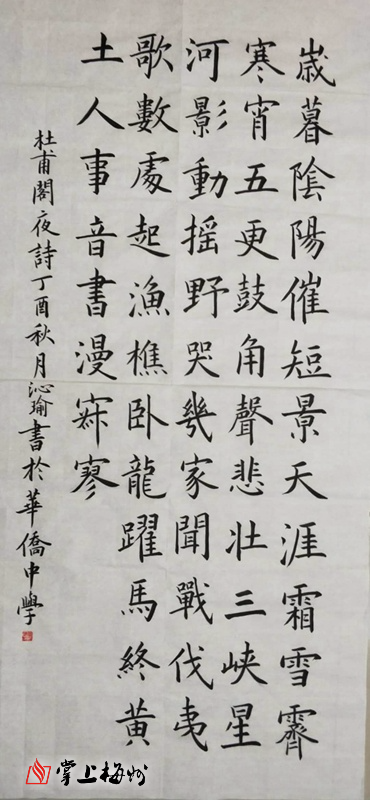 歲暮陰陽催短景天涯霜雪霽
寒宵五更鼓角聲悲壯三峽星
河影動搖野哭幾家聞戰伐夷
歌數處起漁樵卧龍躍馬終黃
土人事音書漫寂寥
杜甫閣夜詩丁酉秋月沁瑜書於華僑中學
掌上梅州